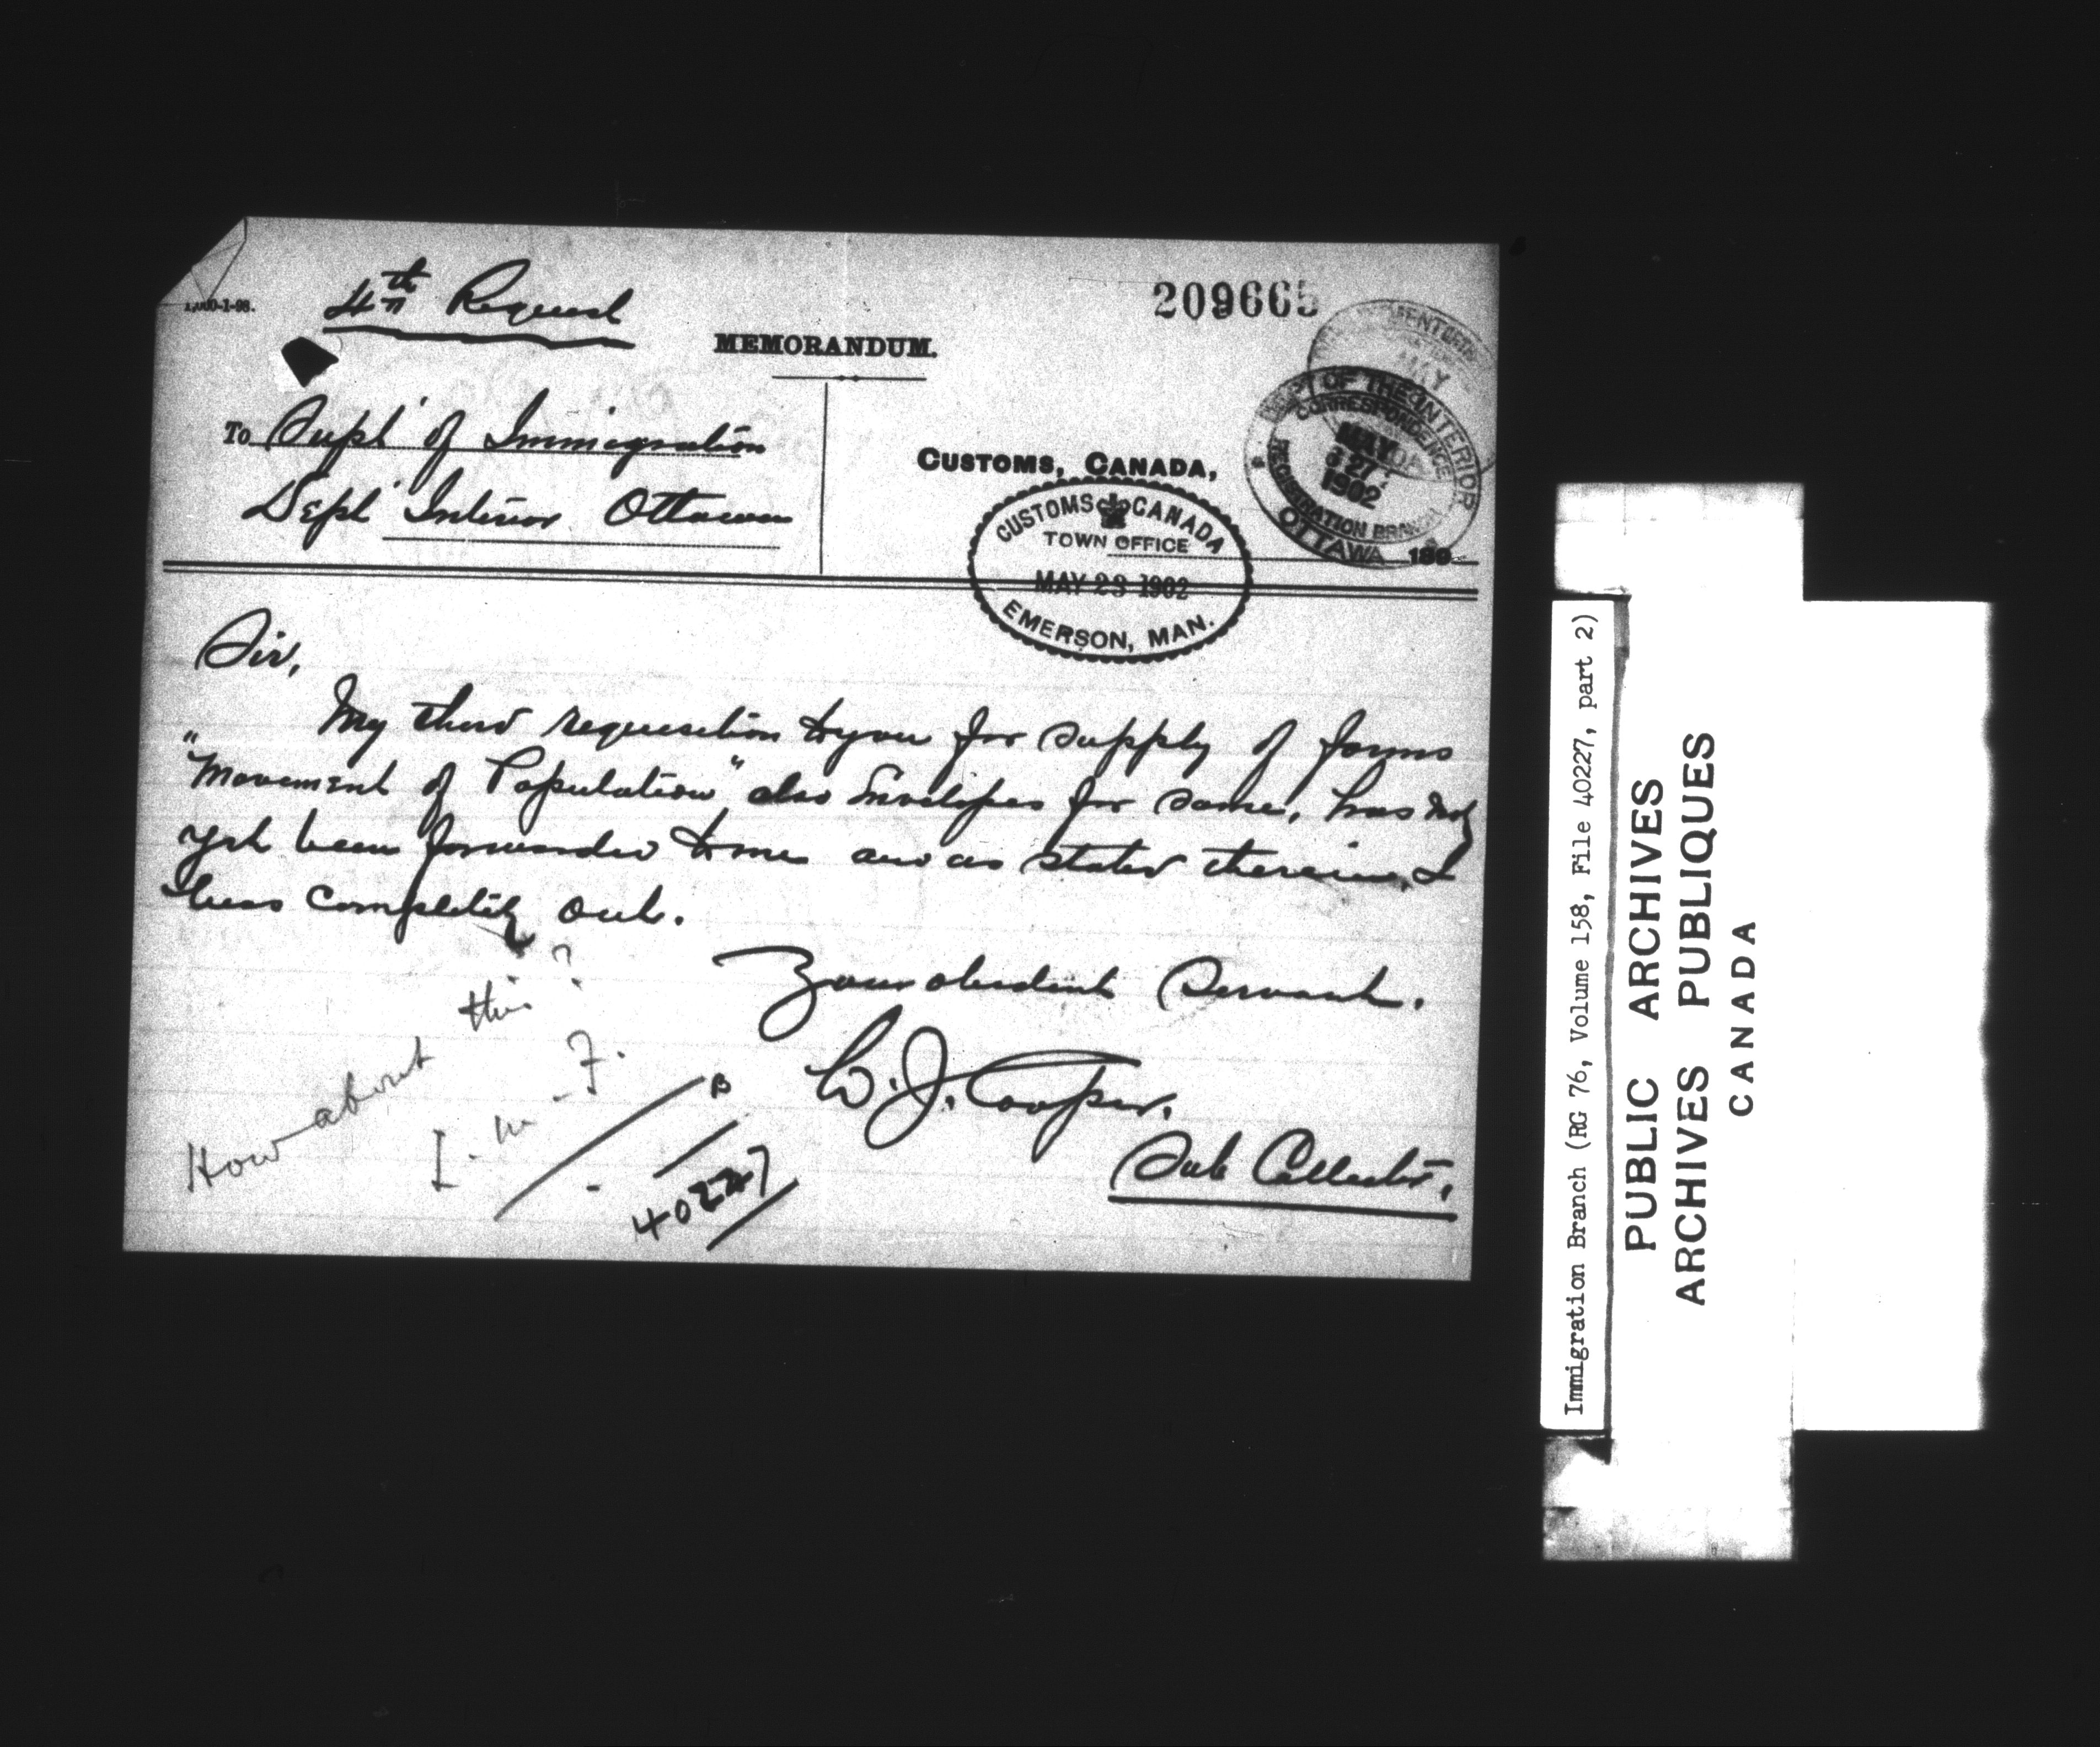 1,000-1-98.
4th Request
209665
MEMORANDUM.
To Supt of Immigration
Dept Interior Ottawa
CUSTOMS, CANADA,
190
CUSTOMS CANADA
TOWN OFFICE
MAY 23 1902
EMERSON, MAN.
MAY
DEPT OF THE INTERIOR
CORRESPONDENCE
MAY
27
1902
REGISTRATION BRANCH
OTTAWA
Sir,
My third requisition to you for supply of forms
"Movement of Population" also Envelopes for same, has not
yet been forwarded to me and as stated therein, I
was completely out.
Your obedient Servant.
W. J. Cooper.
Sub Collector.
How about this?
B
40227
Immigration Branch (RG 76, Volume 158, File 40227, part 2)
PUBLIC ARCHIVES
ARCHIVES PUBLIQUES
CANADA